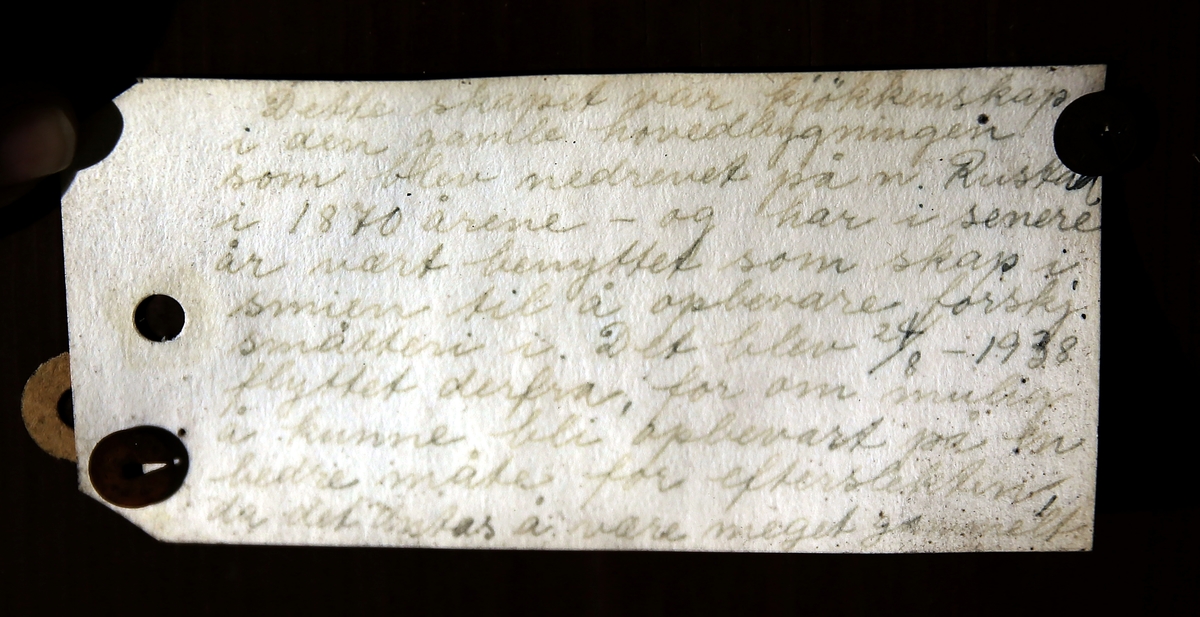 Dette skapet var kjökkenskap
i den gamle hovedbygningen
som blev nedrevet på n. Rustad
i 1870 årene - og har i senere
år vært benyttet som skap i
smien til å opbevare forskj.
småtteri i. Det blev 24/8 - 1938
flyttet derfra, for om mulig
å kunne bli opbevart på en
bedre måte for efterslekten,
da det antas å være meget gammelt